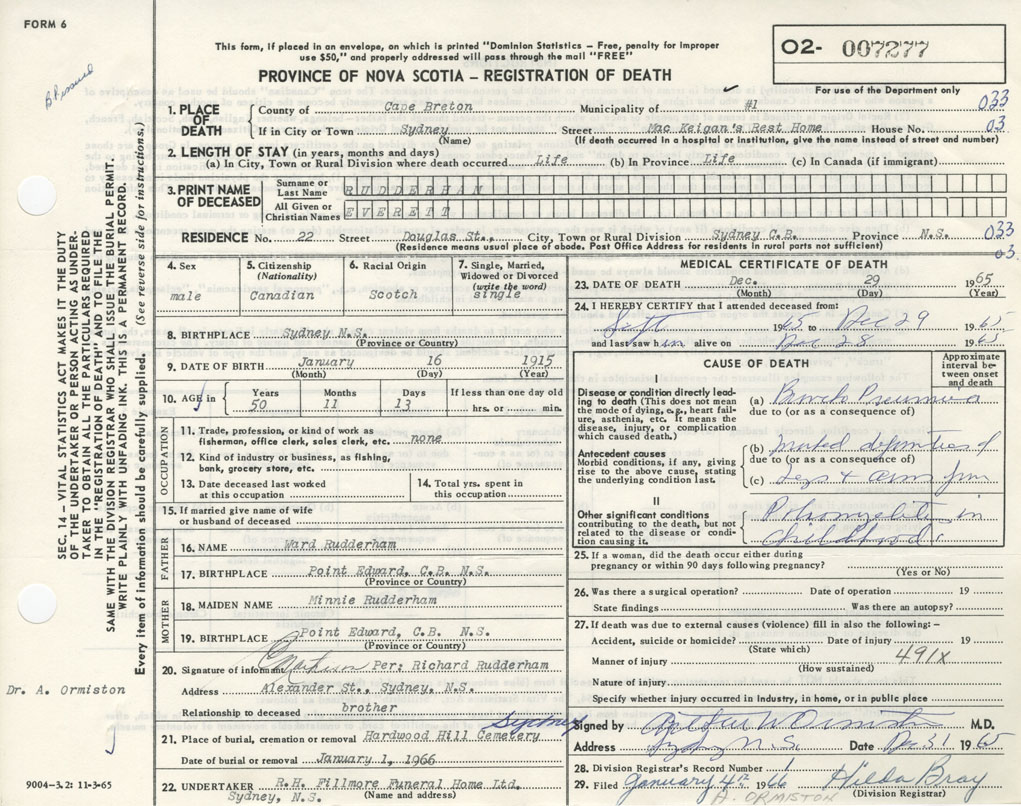 FORM 6
B. Pissured
This form, if placed in an envelope, on which is printed "Dominion Statistics – Free, penalty for improper
use $50," and properly addressed will pass through the mail "FREE"
PROVINCE OF NOVA SCOTIA – REGISTRATION OF DEATH
02- 007277
For use of the Department only
1. PLACE OF DEATH
County of Cape Breton Municipality of #1 033
If in City or Town Sydney Street Mac Keigan's Rest Home House No. 03
(Name) (If death occurred in a hospital or institution, give the name instead of street and number)
2. LENGTH OF STAY (in years, months and days)
(a) In City, Town or Rural Division where death occurred Life (b) In Province Life (c) In Canada (if immigrant)
3. PRINT NAME OF DECEASED
Surname or Last Name RUDDERHAN
All Given or Christian Names EVERETT
RESIDENCE No. 22 Street Douglas St., City, Town or Rural Division Sydney C.B. Province N.S. 033
(Residence means usual place of abode, Post Office Address for residents in rural parts not sufficient) 03
4. Sex
male
5. Citizenship
(Nationality)
Canadian
6. Racial Origin
Scotch
7. Single, Married,
Widowed or Divorced
(write the word)
single
8. BIRTHPLACE Sydney N.S.
(Province or Country)
9. DATE OF BIRTH January 16 1915
(Month) (Day) (Year)
10. AGE in
Years Months Days If less than one day old
50 11 13 hrs. or min.
OCCUPATION
11. Trade, profession or kind of work as
fisherman, office clerk, sales clerk, etc. none
12. Kind of industry or business, as fishing,
bank, grocery store, etc.
13. Date deceased last worked
at this occupation
14. Total yrs. spent in
this occupation
15. If married give name of wife
or husband of deceased
FATHER
16. NAME Ward Rudderham
17. BIRTHPLACE Point Edward, C.B. N.S.
(Province or Country)
MOTHER
18. MAIDEN NAME Minnie Rudderham
19. BIRTHPLACE Point Edward, C.B. N.S.
(Province or Country)
20. Signature of informant Per: Richard Rudderham
Address Alexander St., Sydney, N.S.
Relationship to deceased brother
21. Place of burial, cremation or removal Hardwood Hill Cemetery Sydney
Date of burial or removal January 1, 1966
22. UNDERTAKER R.H. Fillmore Funeral Home Ltd.
Sydney, N.S. (Name and address)
MEDICAL CERTIFICATE OF DEATH
23. DATE OF DEATH Dec. 29 1965
(Month) (Day) (Year)
24. I HEREBY CERTIFY that I attended deceased from:
Sept 1965 to Dec 29 1965
and last saw him alive on Dec 28 1965
CAUSE OF DEATH
Approximate
interval be-
tween onset
and death
I
Disease or condition directly lead-
ing to death (This does not mean
the mode of dying, e.g., heart fail-
ure, asthenia, etc. It means the
disease, injury, or complication
which caused death.)
(a) Broncho Pneumonia
due to (or as a consequence of)
Antecedent causes
Morbid conditions, if any, giving
rise to the above cause, stating
the underlying condition last.
(b) deformities of
due to (or as a consequence of)
(c) Legs & Arms from
II
Other significant conditions
contributing to the death, but not
related to the disease or condi-
tion causing it.
Poliomyelitis in
childhood.
25. If a woman, did the death occur either during
pregnancy or within 90 days following pregnancy?
(Yes or No)
26. Was there a surgical operation? Date of operation 19
State findings Was there an autopsy?
27. If death was due to external causes (violence) fill in also the following:–
Accident, suicide or homicide? Date of injury 19
(State which)
Manner of injury 491X
(How sustained)
Nature of injury
Specify whether injury occurred in industry, in home, or in public place
Signed by W Ormiston M.D.
Address Sydney N.S. Date Dec 31 1965
28. Division Registrar's Record Number 1
29. Filed January 4th 1966 Hilda Bray
A. ORMISTON (Division Registrar)
SEC. 14 – VITAL STATISTICS ACT MAKES IT THE DUTY
OF THE UNDERTAKER OR PERSON ACTING AS UNDER-
TAKER TO OBTAIN ALL THE PARTICULARS REQUIRED
IN THE "REGISTRATION OF DEATH" AND TO FILE THE
SAME WITH THE DIVISION REGISTRAR WHO SHALL ISSUE THE BURIAL PERMIT.
WRITE PLAINLY WITH UNFADING INK. THIS IS A PERMANENT RECORD.
Every item of information should be carefully supplied. (See reverse side for instructions.)
Dr. A. Ormiston
9004–3.2: 11-3-65